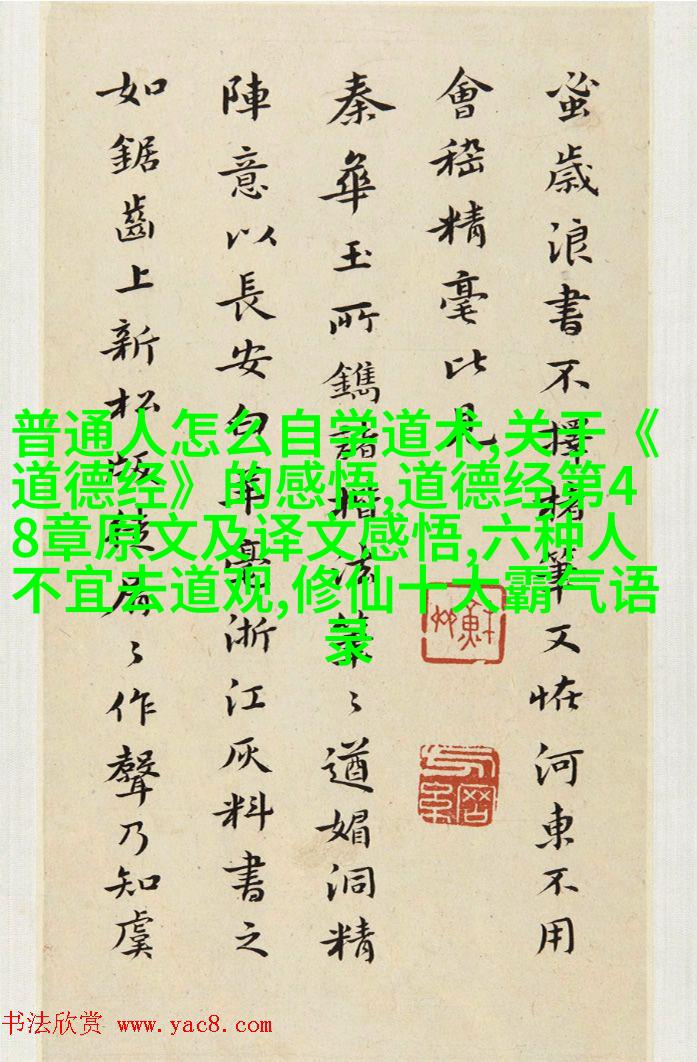 蚤歲浪書不擇楮筆又恠河東不用
會稽精毫比見
秦華玉所鐫諸楷法筆〻遒媚洞精
陣意以長安白羊毫浙江灰料書之
如鋸齒上新松版屑〻作聲乃知虞
普通人怎么自学道术,关于《
道德经》的感悟,道德经第4
8章原文及译文感悟,六种人
不宜去道观,修仙十大霸气语
录
书法欣赏 www.yac8.com